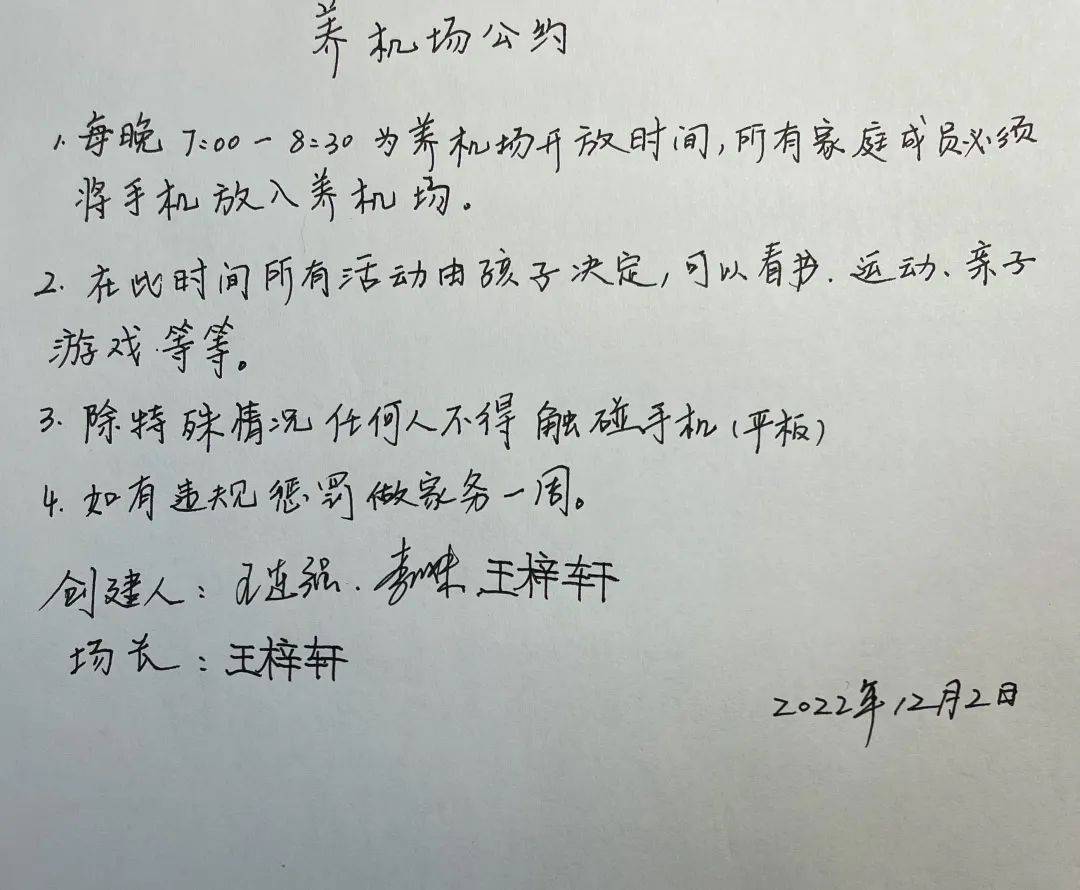 养机场公约
1. 每晚 7:00-8:30 为养机场开放时间,所有家庭成员必须
将手机放入养机场。
2. 在此时间所有活动由孩子决定,可以看书、运动、亲子
游戏等等。
3. 除特殊情况任何人不得触碰手机(平板)
4. 如有违规惩罚做家务一周。
创建人:王连强、王梓轩
场长:王梓轩
2022年12月2日